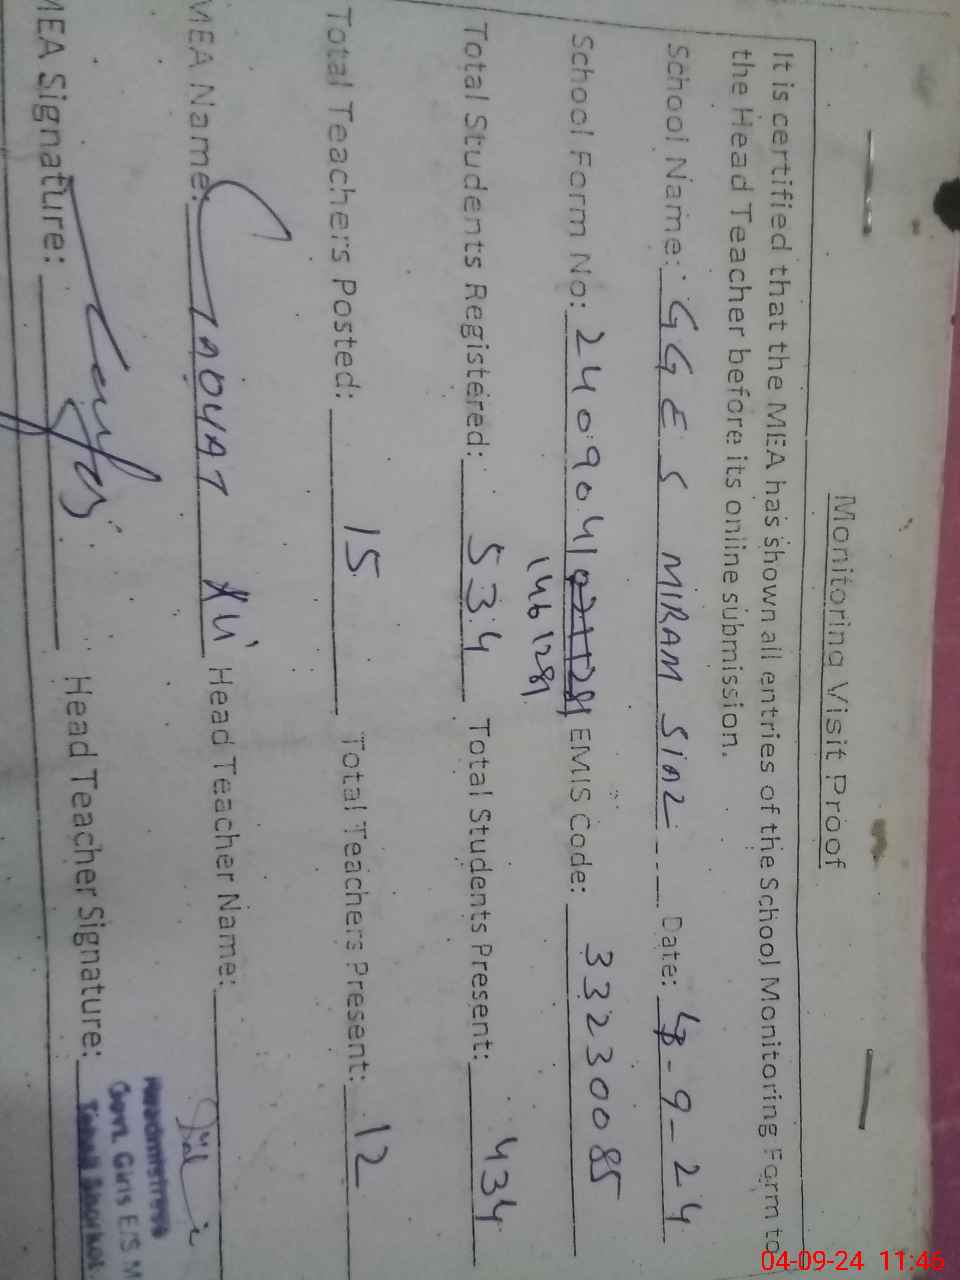 Monitoring Visit Proof
It is certified that the MEA has shown all entries of the School Monitoring Form to
the Head Teacher before its online submission.
School Name: GGES MIRAM SIAL Date: -9-24
School Form No: 2409041 EMIS Code: 33230085
1461281
Total Students Registered: 534 Total Students Present: 434
Total Teachers Posted: 15 Total Teachers Present: 12
MEA Name: Head Teacher Name:
MEA Signature: Head Teacher Signature:
Headmistress
Govt. Girls E/S M
Tehsil Shorkot
04-09-24 11:46